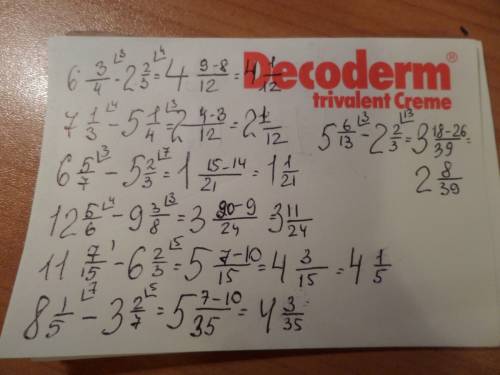 6 3/4 ⌊3 - 2 2/3 ⌊4 = 4 9-8/12 = 4 1/12
Decoderm®
trivalent Creme
7 1/3 ⌊4 - 5 1/4 ⌊3 = 2 4-3/12 = 2 1/12
5 6/13 ⌊3 - 2 2/3 ⌊13 = 3 18-26/39 =
2 8/39
6 5/7 ⌊3 - 5 2/3 ⌊7 = 1 15-14/21 = 1 1/21
12 5/6 ⌊4 - 9 3/8 ⌊3 = 3 20-9/24 3 11/24
11 7/15 ⌊1 - 6 2/3 ⌊5 = 5 7-10/15 = 4 3/15 = 4 1/5
8 1/5 ⌊7 - 3 2/7 ⌊5 = 5 7-10/35 = 4 3/35